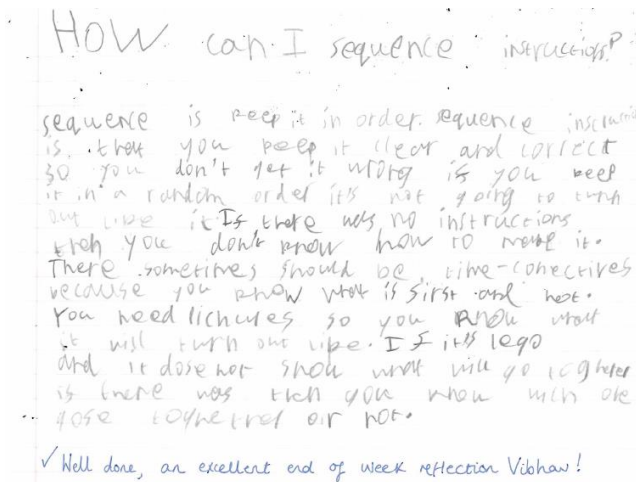 How can I sequence instructions?
sequence is keep it in order. sequence
is that you keep it clear and correct
so you don't get it wrong if you keep
it in a random order it's not going to turn
out like it If there was no instructions
then you don't know how to make it.
There sometimes should be time-conectives
because you know what is first and not.
You need lichures so you know what
it will turn out like. If it's lego
and it dose not show what will go together
is there was then you know wich one
gose or not.
✓ Well done, an excellent end of week reflection Vibhav!